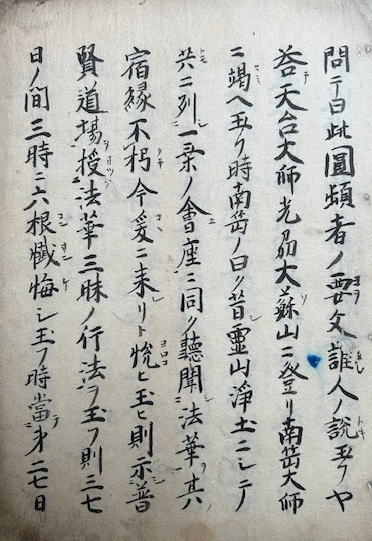 問テ曰此圓頓者ノ要文誰人ノ説玉フヤ
答天台大師光州大蘇山ニ登リ南岳大師
ニ竭ヘ玉フ時南岳ノ曰ク昔霊山淨土ニシテ
共ニ列一乗ノ會座ニ同ク聽聞法華其
宿縁不朽今爰ニ来リト悦ヒ玉ヒ則示普
賢ノ道場授法華三昧ノ行法ヲ玉フ則三七
日ノ間三時ニ六根懺悔シ玉フ時當テ第二七日